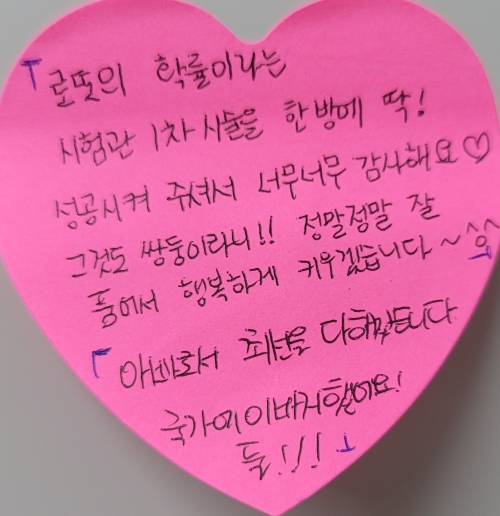 「로또의 확률이라는
시험관 1차 시술을 한방에 딱!
성공시켜 주셔서 너무너무 감사해요♡
그것도 쌍둥이라니!! 정말정말 잘
품에서 행복하게 키우겠습니다~^^
「아빠로서 최선을 다해겠습니다.
국가에 이바지했어요!
둘!!!」